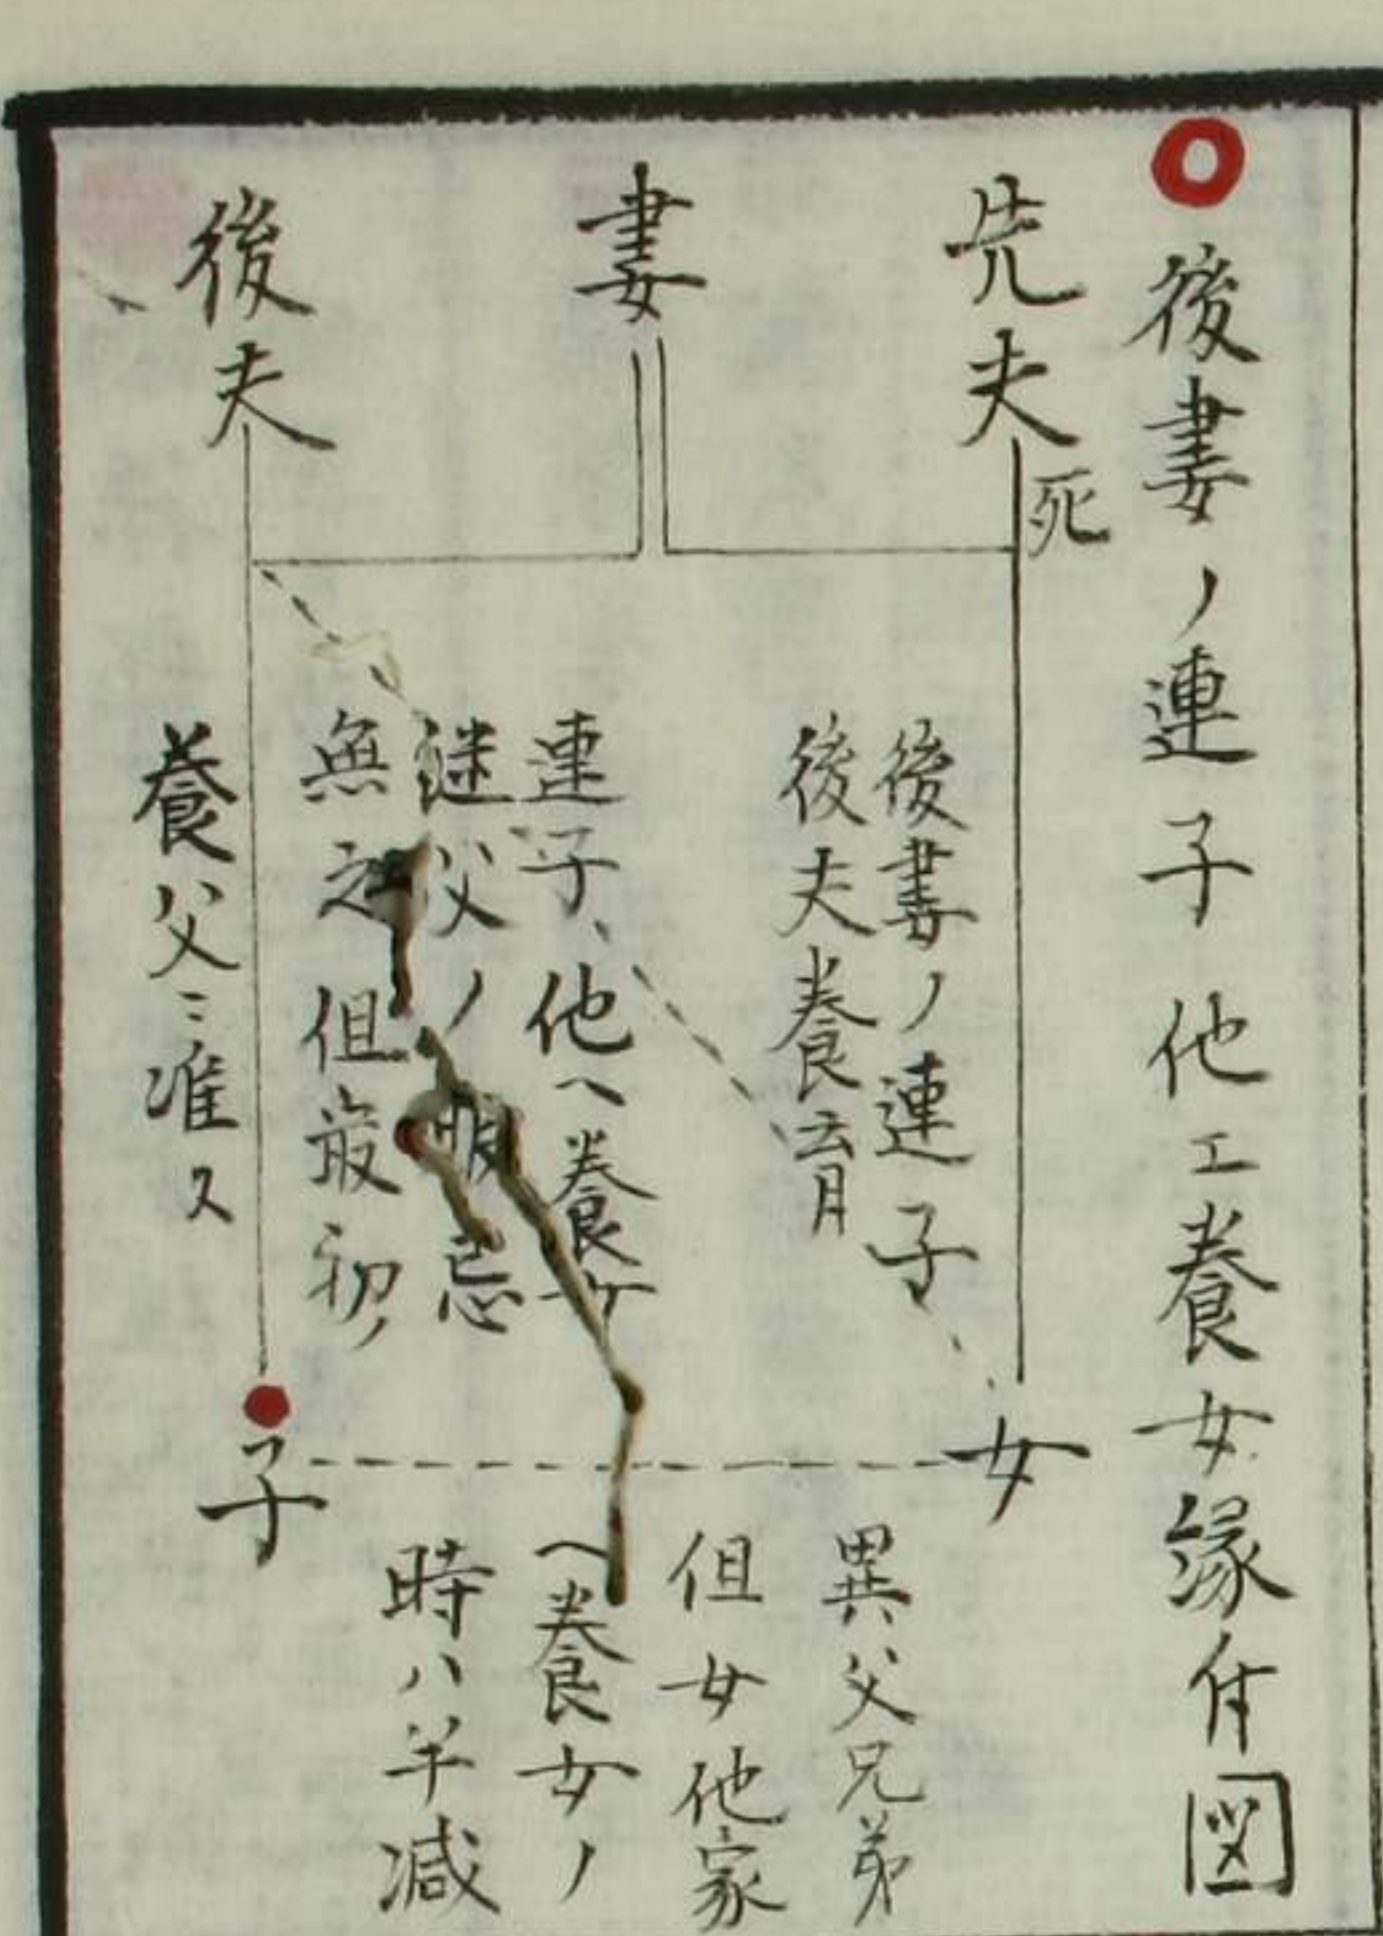 後妻ノ連子他エ養女縁付図
先夫
死
妻
後夫
後妻ノ連子
後夫養育
連子、他ヘ養女
継父ノ服忌
無之但最初ノ
養父ニ准ス
女
子
異父兄弟
但女他家
ヘ養女ノ
時ハ半減